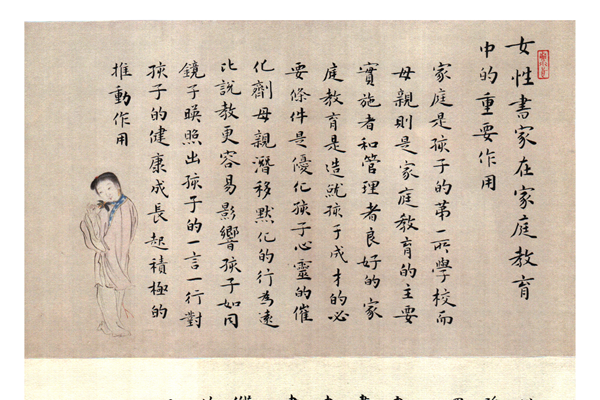 女性書家在家庭教育
中的重要作用
家庭是孩子的第一所學校而
母親則是家庭教育的主要
實施者和管理者良好的家
庭教育是造就孩子成才的必
要條件是優化孩子心靈的催
化劑母親潛移默化的行為遠
比說教更容易影響孩子如同
鏡子映照出孩子的一言一行對
孩子的健康成長起積極的
推動作用